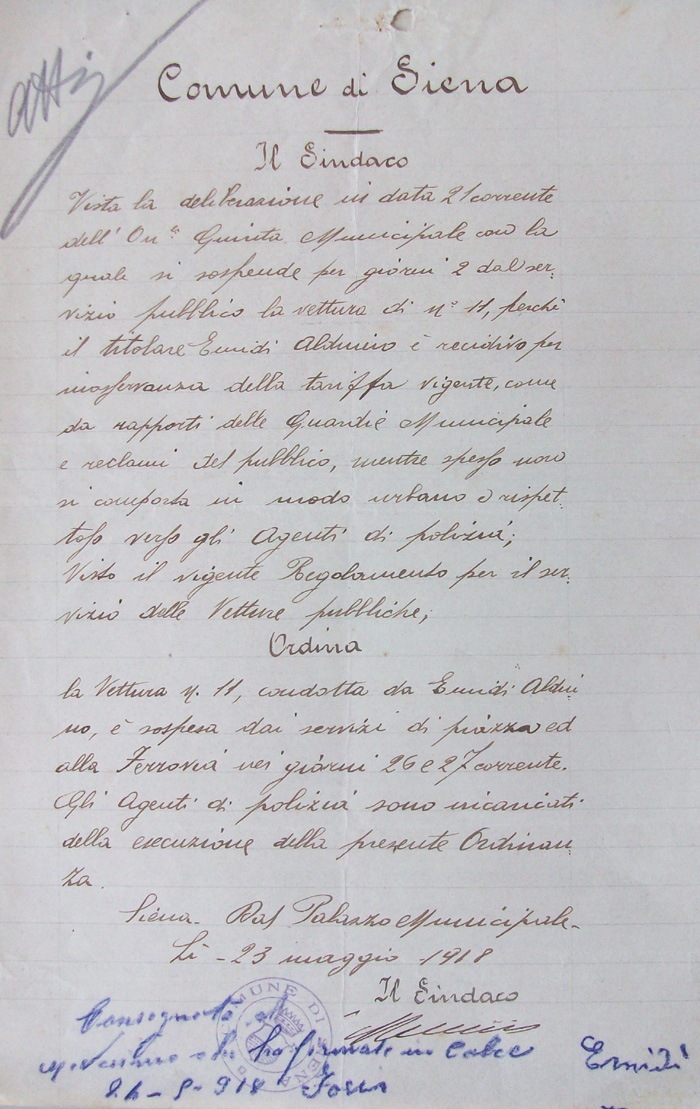 atti
Comune di Siena
Il Sindaco
Vista la deliberazione in data 21 corrente
dell' On.ª Giunta Municipale con la
quale si sospende per giorni 2 dal ser-
vizio pubblico la vettura di nº 11, perchè
il titolare Emidi Alduino è recidivo per
inosservanza della tariffa vigente, come
da rapporti delle Guardie Municipale
e reclami del pubblico, mentre spesso non
si comporta in modo urbano o rispet-
toso verso gli Agenti di polizia;
Visto il vigente Regolamento per il ser-
vizio delle Vetture pubbliche;
Ordina
la Vettura n. 11, condotta da Emidi Aldui
no, è sospesa dai servizi di piazza ed
alla Ferrovia nei giorni 26 e 27 corrente.
Gli Agenti di polizia sono incaricati
della esecuzione della presente Ordinan-
za.
Siena. Dal Palazzo Municipale-
Lì - 23 maggio 1918
Il Sindaco
COMUNE DI
Consegnato al
che ha firmato in calce
Emidi
24-5-918